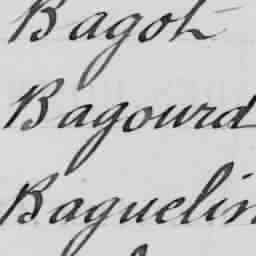 Bagot
Bagourd
Baguelin